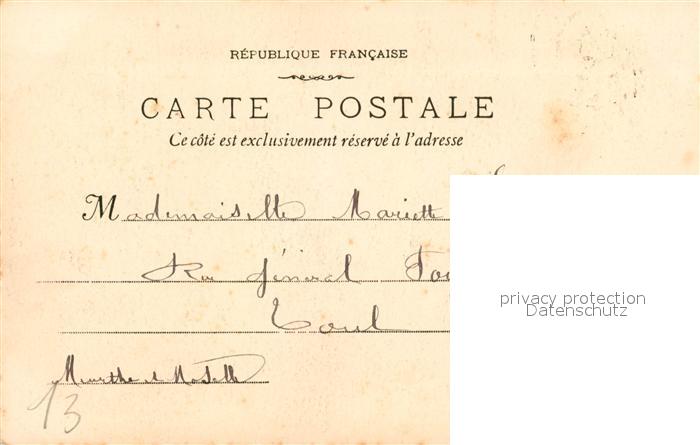 RÉPUBLIQUE FRANÇAISE
CARTE POSTALE
Ce côté est exclusivement réservé à l'adresse
Mademoiselle Mariette
Rue Général
Toul
Meurthe & Moselle
13
privacy protection
Datenschutz